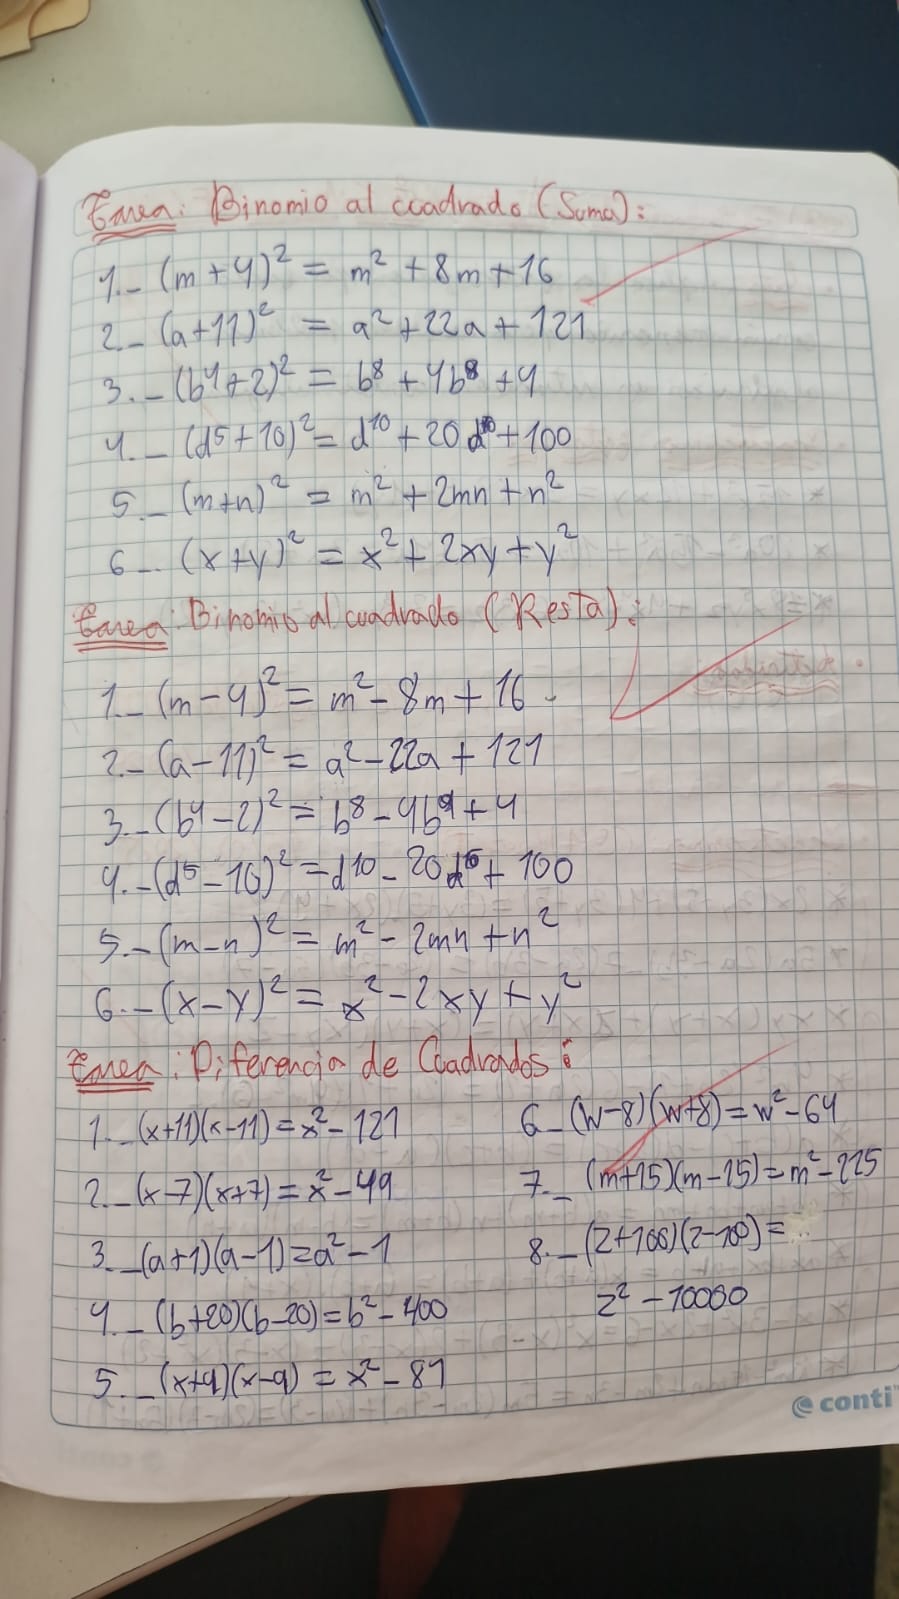 Tarea: Binomio al cuadrado (Suma):
1.- (m+4)² = m² + 8m + 16
2.- (a+11)² = a² + 22a + 121
3.- (b⁴+2)² = b⁸ + 4b⁸ + 4
4.- (d⁵+10)² = d¹⁰ + 20d¹⁰ + 100
5.- (m+n)² = m² + 2mn + n²
6.- (x+y)² = x² + 2xy + y²
Tarea: Binomio al cuadrado (Resta):
1.- (m-4)² = m² - 8m + 16
2.- (a-11)² = a² - 22a + 121
3.- (b⁴-2)² = b⁸ - 4b⁴ + 4
4.- (d⁵-10)² = d10 - 20d⁵ + 100
5.- (m-n)² = m² - 2mn + n²
6.- (x-y)² = x² - 2xy + y²
Tarea: Diferencia de Cuadrados:
1.- (x+11)(x-11) = x² - 121
2.- (x-7)(x+7) = x² - 49
3.- (a+1)(a-1) = a² - 1
4.- (b+20)(b-20) = b² - 400
5.- (x+9)(x-9) = x² - 81
6.- (w-8)(w+8) = w² - 64
7.- (m+15)(m-15) = m² - 225
8.- (z+100)(z-100) =
z² - 10000
conti